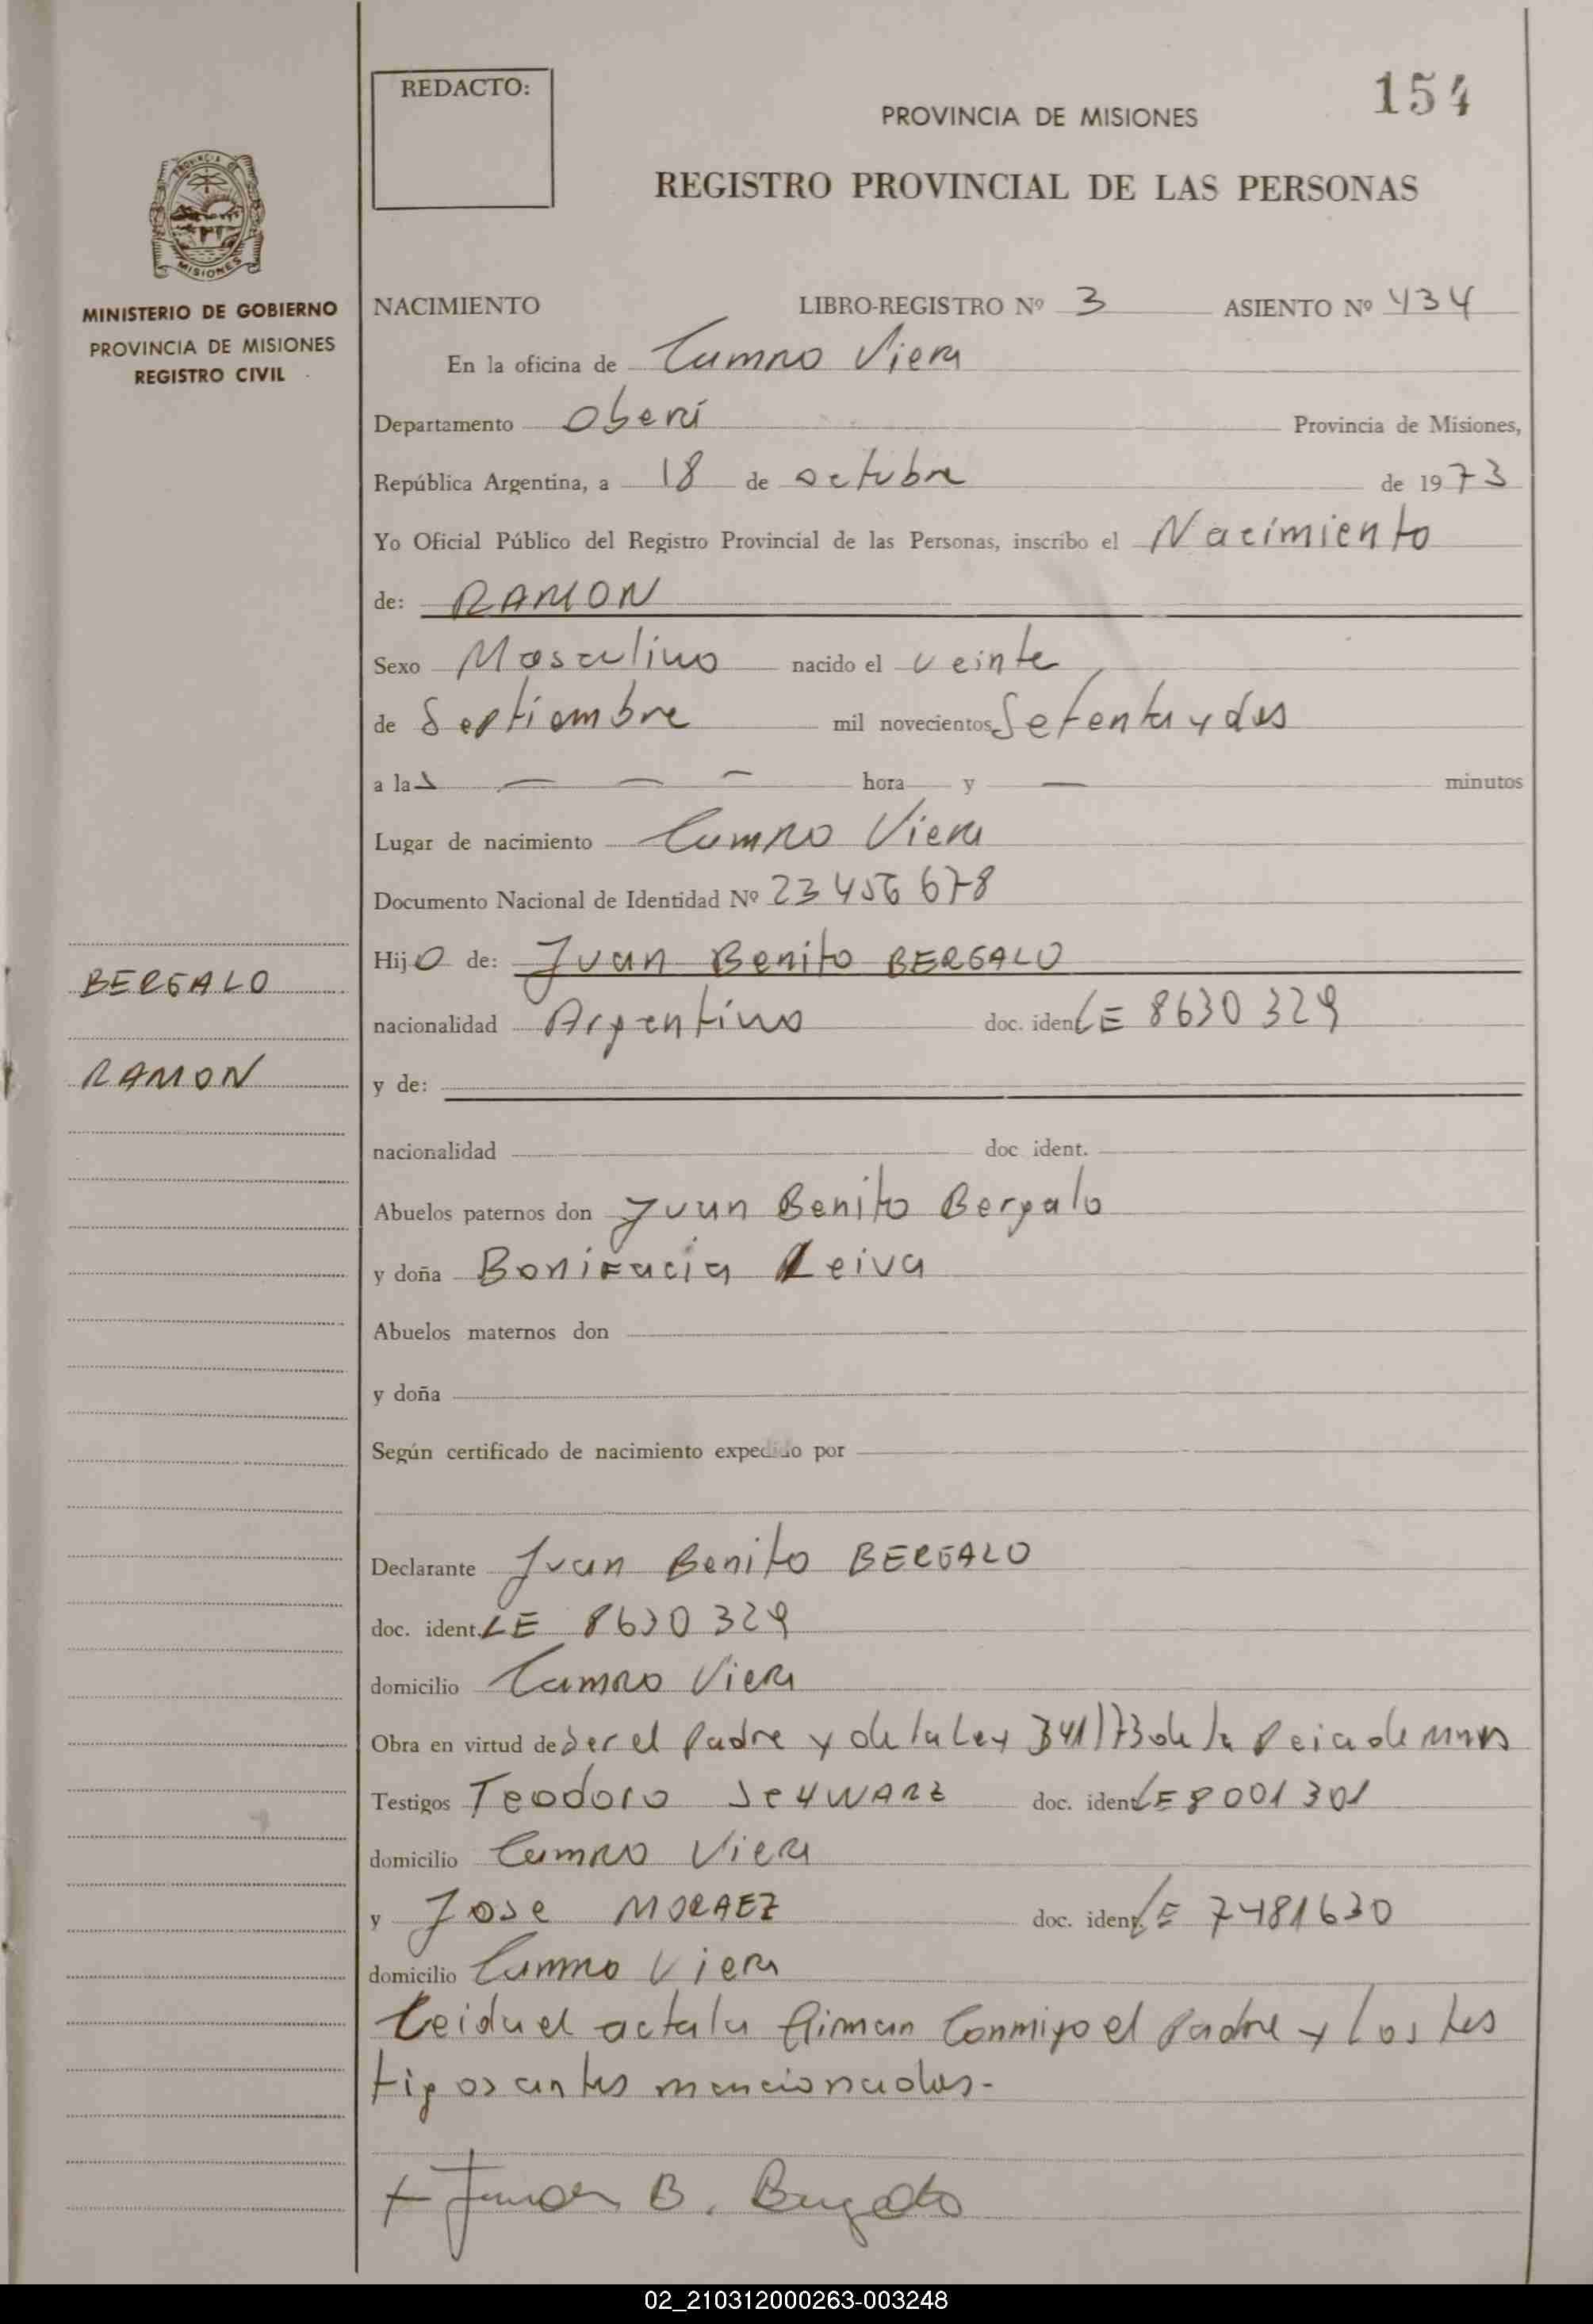 REDACTO:
154
PROVINCIA DE MISIONES
REGISTRO PROVINCIAL DE LAS PERSONAS
PROVINCIA DE
MISIONES
MINISTERIO DE GOBIERNO
PROVINCIA DE MISIONES
REGISTRO CIVIL
NACIMIENTO LIBRO-REGISTRO Nº 3 ASIENTO Nº 434
En la oficina de Campo Viera
Departamento Oberá Provincia de Misiones,
República Argentina, a 18 de octubre de 1973
Yo Oficial Público del Registro Provincial de las Personas, inscribo el Nacimiento
de: RAMON
Sexo Masculino nacido el veinte
de Septiembre mil novecientos Setenta y dos
a las — — — hora y — minutos
Lugar de nacimiento Campo Viera
Documento Nacional de Identidad Nº 23 456 678
Hijo de: Juan Benito BERGALO
BERGALO
nacionalidad Argentino doc. ident. LE 8630 329
RAMON
y de:
nacionalidad doc ident.
Abuelos paternos don Juan Benito Bergalo
y doña Bonifacia Leiva
Abuelos maternos don
y doña
Según certificado de nacimiento expedido por
Declarante Juan Benito BERGALO
doc. ident. LE 8630 329
domicilio Campo Viera
Obra en virtud de ser el Padre y de la Ley 341/73 de la Pcia de Mnes
Testigos Teodoro SCHWARZ doc. ident. LE 8 001 301
domicilio Campo Viera
y Jose MORAEZ doc. ident. LE 7481630
domicilio Campo Viera
Leida el acta la firman Conmigo el Padre y los tes
tigos antes mencionados-
+ Juan B. Bergalo
02_210312000263-003248